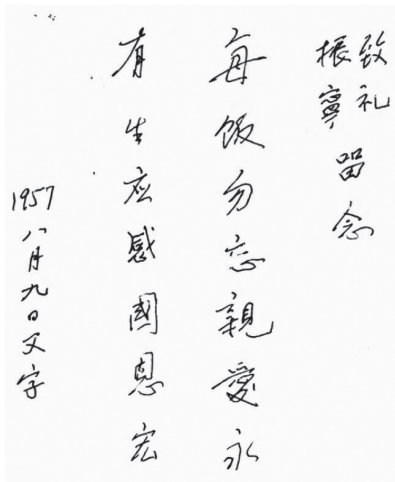 致礼
振寧
留念
每飯勿忘親愛永
有生应感國恩宏
1957八月九日父字